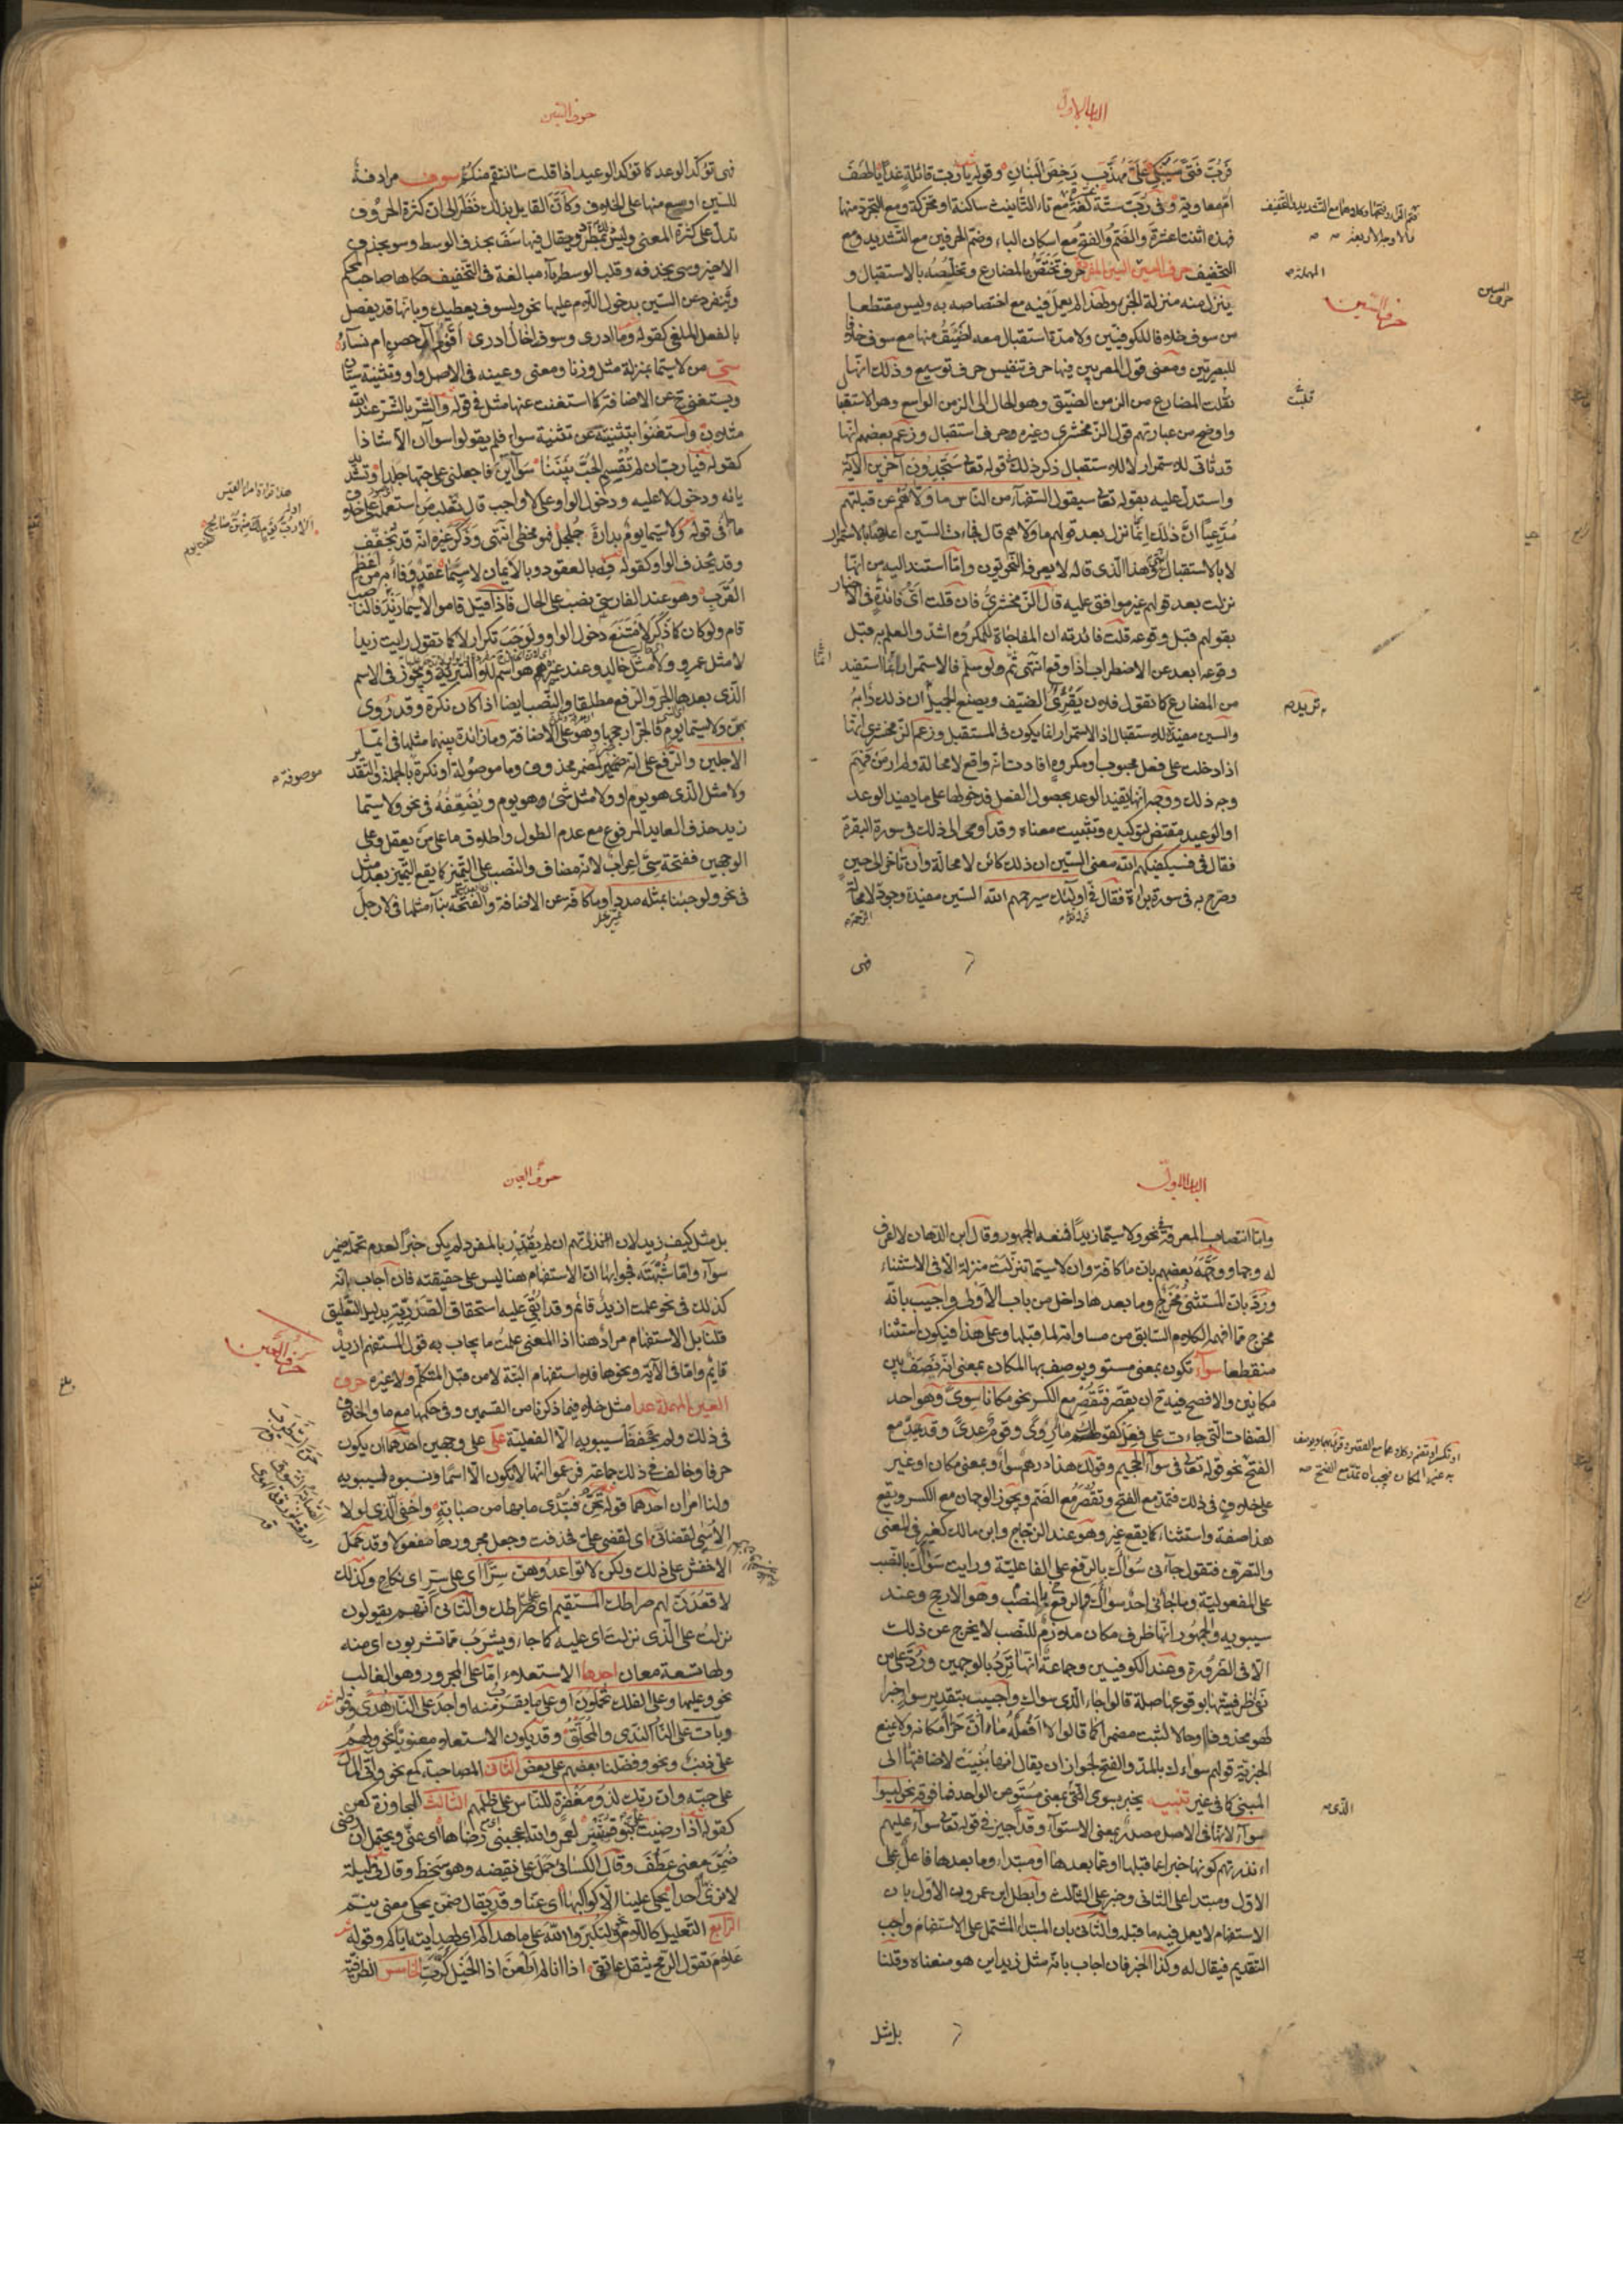 الباب الاول
فرب فتى سيبكي علي مهذب رخص البنان وقوله يا ربت قائلة غدا يا لهف
ام معاوية وفي ربت ستة كفة مع تاء التأنيث ساكنة او محركة ومع التجرد منها
فهذه اثنتا عشرة والضم والفتح مع اسكان الباء وضم الحرفين مع التشديد ومع
التخفيف حرف السين السين المفردة حرف تختص بالمضارع وتخلصه بالاستقبال و
ينزل منه منزلة الجزء ولهذا لم يعمل فيه مع اختصاصه به وليس مقتطعا
من سوف خلافا للكوفيين ولا مدة استقبال معه اضيق منها مع سوف خلافا
للبصريين ومعنى قول المعربين فيها حرف تنفيس حرف توسيع وذلك انها
نقلت المضارع من الزمن الضيق وهو الحال الى الزمن الواسع وهو الاستقبا
واوضح من عبارتهم قول الزمخشري وغيره وحرف استقبال وزعم بعضهم انها
قد تأتي للاستمرار لا للاستقبال ذكر ذلك في قوله تعالى ستجدون آخرين الآية
واستدل عليه بقوله تعالى سيقول السفهاء من الناس ما ولاهم عن قبلتهم
مدعيا ان ذلك انما نزل بعد قولهم ما ولاهم قال فجاءت السين اعلاما بالاستمرار
لا بالاستقبال انتهى وهذا الذي قاله لا يعرفه النحويون وما استند اليه من انها
نزلت بعد قولهم غير موافق عليه قال الزمخشري فان قلت اي فائدة في الاخبار
بقولهم قبل وقوعه قلت فائدته ان المفاجاة للمكروه اشد والعلم به قبل
وقوعه ابعد عن الاضطراب اذا وقع انتهى ثم ولو سلم فالاستمرار انما استفيد
من المضارع كما تقول فلان يقري الضيف ويصنع الجميل ان ذلك دأبه
والسين مفيدة للاستقبال اذ الاستمرار انما يكون في المستقبل وزعم الزمخشري انها
اذا دخلت على فعل محبوب او مكروه افادت انه واقع لا محالة ولم ار من فهم
وجه ذلك ووجهه انها تفيد الوعد بحصول الفعل فدخولها على ما يفيد الوعد
او الوعيد مقتض لتوكيده وتثبيت معناه وقد اومى الى ذلك في سورة البقرة
فقال في فسيكفيكهم الله معنى السين ان ذلك كائن لا محالة وان تأخر الى حين
وصرح به في سورة براءة فقال في اولئك سيرحمهم الله السين مفيدة وجود لا محالة
الرحمة
فهي
المهملة
حرف السين
حرف السين
قلبت
تريد
حرف السين
فهي تؤكد الوعد كما تؤكد الوعيد اذا قلت سأنتقم منك سوف مرادفة
للسين او اوسع منها على الخلاف وكأن القايل بذلك نظر الى ان كثرة الحروف
تدل على كثرة المعنى وليس بمطرد ويقال فيها سف بحذف الوسط وسو بحذف
الاخير وسي بحذفه وقلب الوسط ياء مبالغة في التخفيف حكاها صاحب المحكم
وتنفرد عن السين بدخول اللام عليها نحو ولسوف يعطيك وبانها قد يفصل
بالفعل الملغي كقوله وما ادري وسوف اخال ادري اقوم آل حصن ام نساء
سي من لا سيما بمنزلة مثل وزنا ومعنى وعينه في الاصل واو وتثنيته سيان
ويستغني ح عن الاضافة كما استغنت عنها مثل في قوله والشر بالشر عند الله
مثلان واستغنوا بتثنيته عن تثنية سواء فلم يقولوا سواآن الا شاذا
كقوله فيا رب ان لم تقسم الحب بيننا سواءين فاجعلني على حبها جلدا وتشد
يائه ودخول لا عليه ودخول الواو على لا واجب قال ثعلب من استعمله على خلاف
ما في قوله ولا سيما يوم بدارة جلجل فهو مخطئ انتهى وذكر غيره انه قد يخفف
وقد يحذف الواو كقوله فه بالعقود وبالايمان لا سيما عقد وفاء به من اعظم
القرب وهو عند الفارسي نصب على الحال فاذا قيل قاموا لا سيما زيد فالناصب
قام ولو كان كما ذكر لامتنع دخول الواو ولوجب تكرار لا كما تقول رايت زيدا
لا مثل عمرو ولا مثل خالد وعند غيرهم هو اسم للا التبرئة ويجوز في الاسم
الذي بعدها الجر والرفع مطلقا والنصب ايضا اذا كان نكرة وقد روي
بهن ولا سيما يوم فالجر ارجحها وهو على الاضافة وما زائدة بينهما مثلها في ايما
الاجلين والرفع على انه خبر لمضمر محذوف وما موصولة او نكرة بالجملة والتقدير
ولا مثل الذي هو يوم او ولا مثل شيء هو يوم ويضعفه في نحو ولا سيما
زيد حذف العايد المرفوع مع عدم الطول واطلاق ما على من يعقل وعلى
الوجهين ففتحة سي اعراب لانه مضاف والنصب على التمييز كما يقع التمييز بعد مثل
في نحو ولو جئنا بمثله مددا وما كافة عن الاضافة والفتحة بناء مثلها في لا رجل
موصوفة
الباب الاول
واما انتصاب المعرفة نحو ولا سيما زيدا فمنعه الجمهور وقال ابن الدهان لا اعرف
له وجها ووجهه بعضهم بان ما كافة وان لا سيما تنزلت منزلة الا في الاستثناء
ورد بان المستثنى مخرج وما بعدها داخل من باب الاولى واجيب بانه
مخرج مما افهمه الكلام السابق من مساواته لما قبلها وعلى هذا فيكون استثناء
منقطعا سواء تكون بمعنى مستو ويوصف بها المكان بمعنى انه نصف بين
مكانين والافصح فيه ح ان يقصر مع الكسر نحو مكانا سوى وهو احد
الصفات التي جاءت على فعل كقولهم ماء روى وقوم عدى وقد تمد مع
الفتح نحو قوله تعالى في سواء الجحيم وقولك هذا درهم سواء وبمعنى مكان او غير
على خلاف في ذلك فتمد مع الفتح وتقصر مع الضم ويجوز الوجهان مع الكسر ويقع
هذا صفة واستثناء كما يقع غير وهو عند الزجاج وابن مالك كغير في المعنى
والتصرف فتقول جاءني سواك بالرفع على الفاعلية ورايت سواك بالنصب
على المفعولية وما جاءني احد سواك بالرفع والنصب وهو الارجح وعند
سيبويه والجمهور انها ظرف مكان ملازم للنصب لا يخرج عن ذلك
الا في الضرورة وعند الكوفيين وجماعة انها ترد بالوجهين ورد على من
نفى ظرفيتها بوقوعها صلة قالوا جاء الذي سواك واجيب بتقدير سوا خبرا
لهو محذوفا او حالا لثبت مضمرا كما قالوا لا افعله ما ان حراء مكانه ولا يمنع
الخبرية قولهم سواءك بالمد والفتح لجواز ان يقال انها بنيت لاضافتها الى
المبني كما في غير تنبيه يخبر بسوى التي بمعنى مستو عن الواحد فما فوقه نحو ليسوا
سواء لانها في الاصل مصدر بمعنى الاستواء وقد اجيز في قوله تعالى سواء عليهم
ءانذرتهم كونها خبرا عما قبلها او عما بعدها او مبتدا وما بعدها فاعل على
الاول ومبتدا على الثاني وخبر على الثالث وابطل ابن عمرون الاول بان
الاستفهام لا يعمل فيه ما قبله والثاني بان المبتدا المشتمل على الاستفهام واجب
التقديم فيقال له وكذا الخبر فان اجاب بانه مثل زيد اين هو منعناه وقلنا
بل مثل
حرف العين
بل مثل كيف زيد لان ءانذرتهم ان لم يقدر بالمفرد لم يكن خبرا لعدم تحمله ضمير
سواء واما شبهته فجوابها ان الاستفهام هنا ليس على حقيقته فان اجاب بانه
كذلك في نحو علمت ازيد قائم وقد ابقي عليه استحقاق الصدرية بدليل التعليق
قلنا بل الاستفهام مراد هنا اذ المعنى علمت ما يجاب به قول المستفهم ازيد
قايم واما في الآية ونحوها فلا استفهام البتة لا من قبل المتكلم ولا غيره حرف
العين المهملة عدا مثل خلا فيما ذكرنا من القسمين وفي حكمها مع ما والخلاف
في ذلك ولم يحفظ سيبويه الا الفعلية على على وجهين احدهما ان يكون
حرفا وخالف في ذلك جماعة فزعموا انها لا تكون الا اسما ونسبوه لسيبويه
ولنا امران احدهما قوله تحن فتبدي ما بها من صبابة واخفي الذي لولا
الاسى لقضاني اي لقضى علي فحذفت وجعل مجرورها مفعولا وقد حمل
الاخفش على ذلك ولكن لا تواعدوهن سرا اي على سر اي نكاح وكذلك
لاقعدن لهم صراطك المستقيم اي على صراطك والثاني انهم يقولون
نزلت على الذي نزلت اي عليه كما جاء ويشرب مما تشربون اي منه
ولها تسعة معان احدها الاستعلاء اما على المجرور وهو الغالب
نحو وعليها وعلى الفلك تحملون او على ما يقرب منه نحو او اجد على النار هدى وقوله
وبات على النار الندى والمحلق وقد يكون الاستعلاء معنويا نحو ولهم
علي ذنب ونحو وفضلنا بعضهم على بعض الثاني المصاحبة كمع نحو وآتى المال
على حبه وان ربك لذو مغفرة للناس على ظلمهم الثالث المجاوزة كعن
كقوله اذا رضيت علي بنو قشير لعمر الله اعجبني رضاها اي عني ويحتمل ان رضي
ضمن معنى عطف وقال الكسائي حمل على نقيضه وهو سخط وقال في ليلة
لا نرى بها احدا يحكي علينا الا كواكبها اي عنا وقد يقال ضمن يحكي معنى ينم
الرابع التعليل كاللام نحو ولتكبروا الله على ما هداكم اي لهدايته اياكم وقوله
علام تقول الرمح يثقل عاتقي اذا انا لم اطعن اذا الخيل كرت الخامس الظرفية
حرف العين